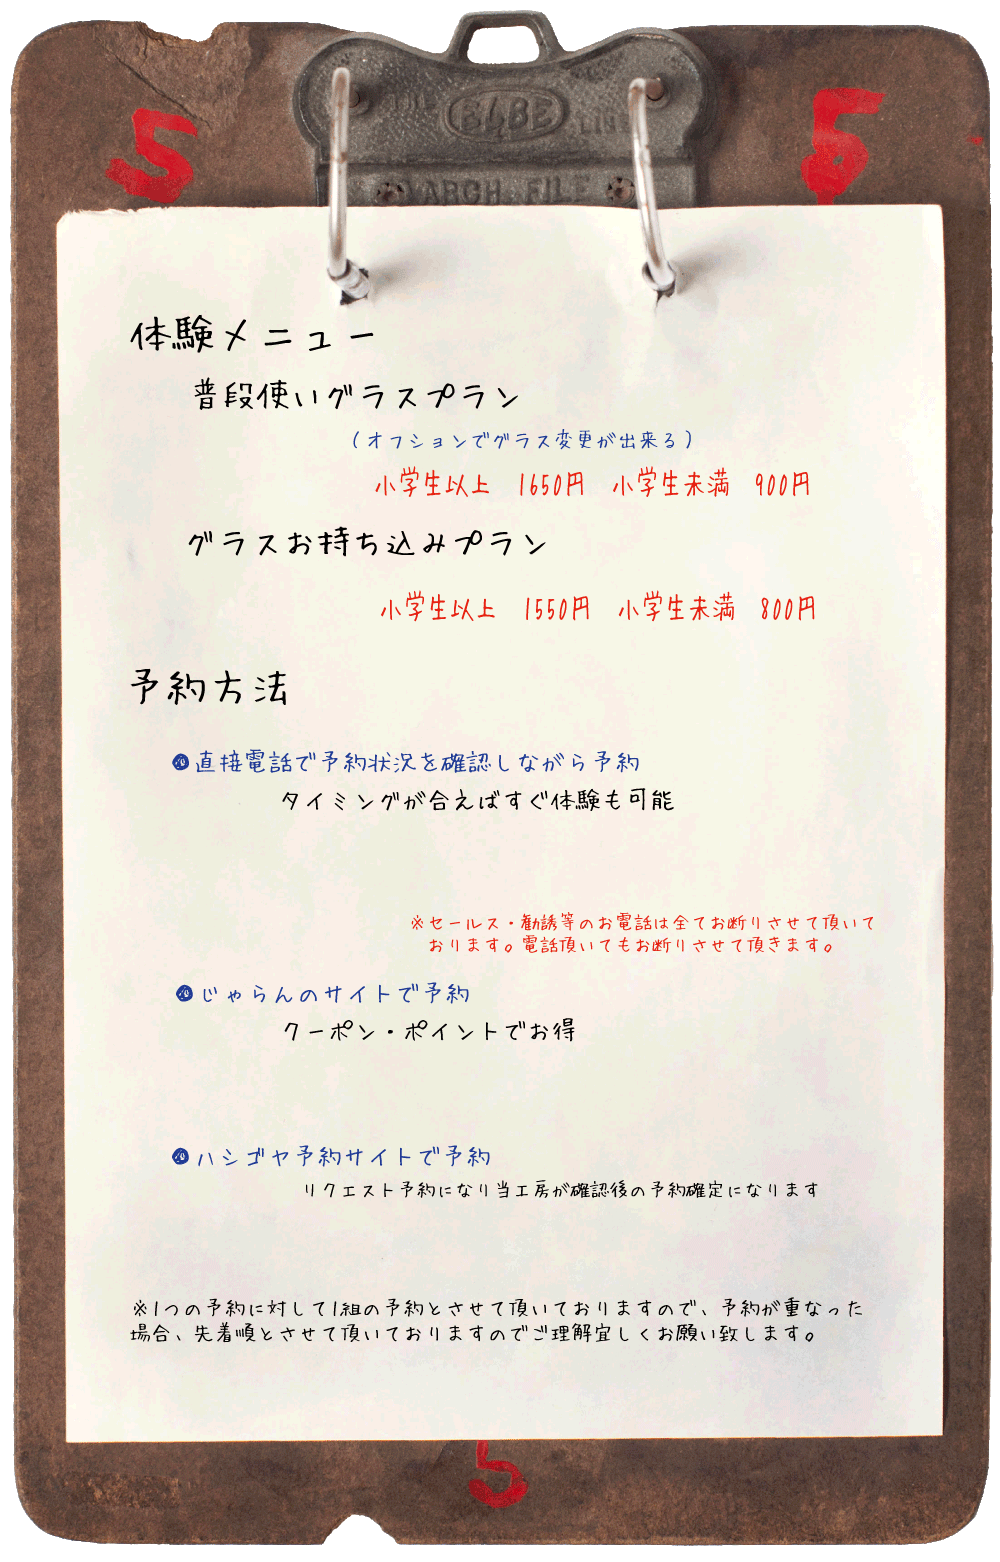 5
5
THE
GLOBE
LINE
ARCH FILE
体験メニュー
普段使いグラスプラン
(オプションでグラス変更が出来る)
小学生以上 1650円 小学生未満 900円
グラスお持ち込みプラン
小学生以上 1550円 小学生未満 800円
予約方法
●直接電話で予約状況を確認しながら予約
タイミングが合えばすぐ体験も可能
※セールス・勧誘等のお電話は全てお断りさせて頂いて
おります。電話頂いてもお断りさせて頂きます。
●じゃらんのサイトで予約
クーポン・ポイントでお得
●ハシゴヤ予約サイトで予約
リクエスト予約になり当工房が確認後の予約確定になります
※1つの予約に対して1組の予約とさせて頂いておりますので、予約が重なった
場合、先着順とさせて頂いておりますのでご理解宜しくお願い致します。
5